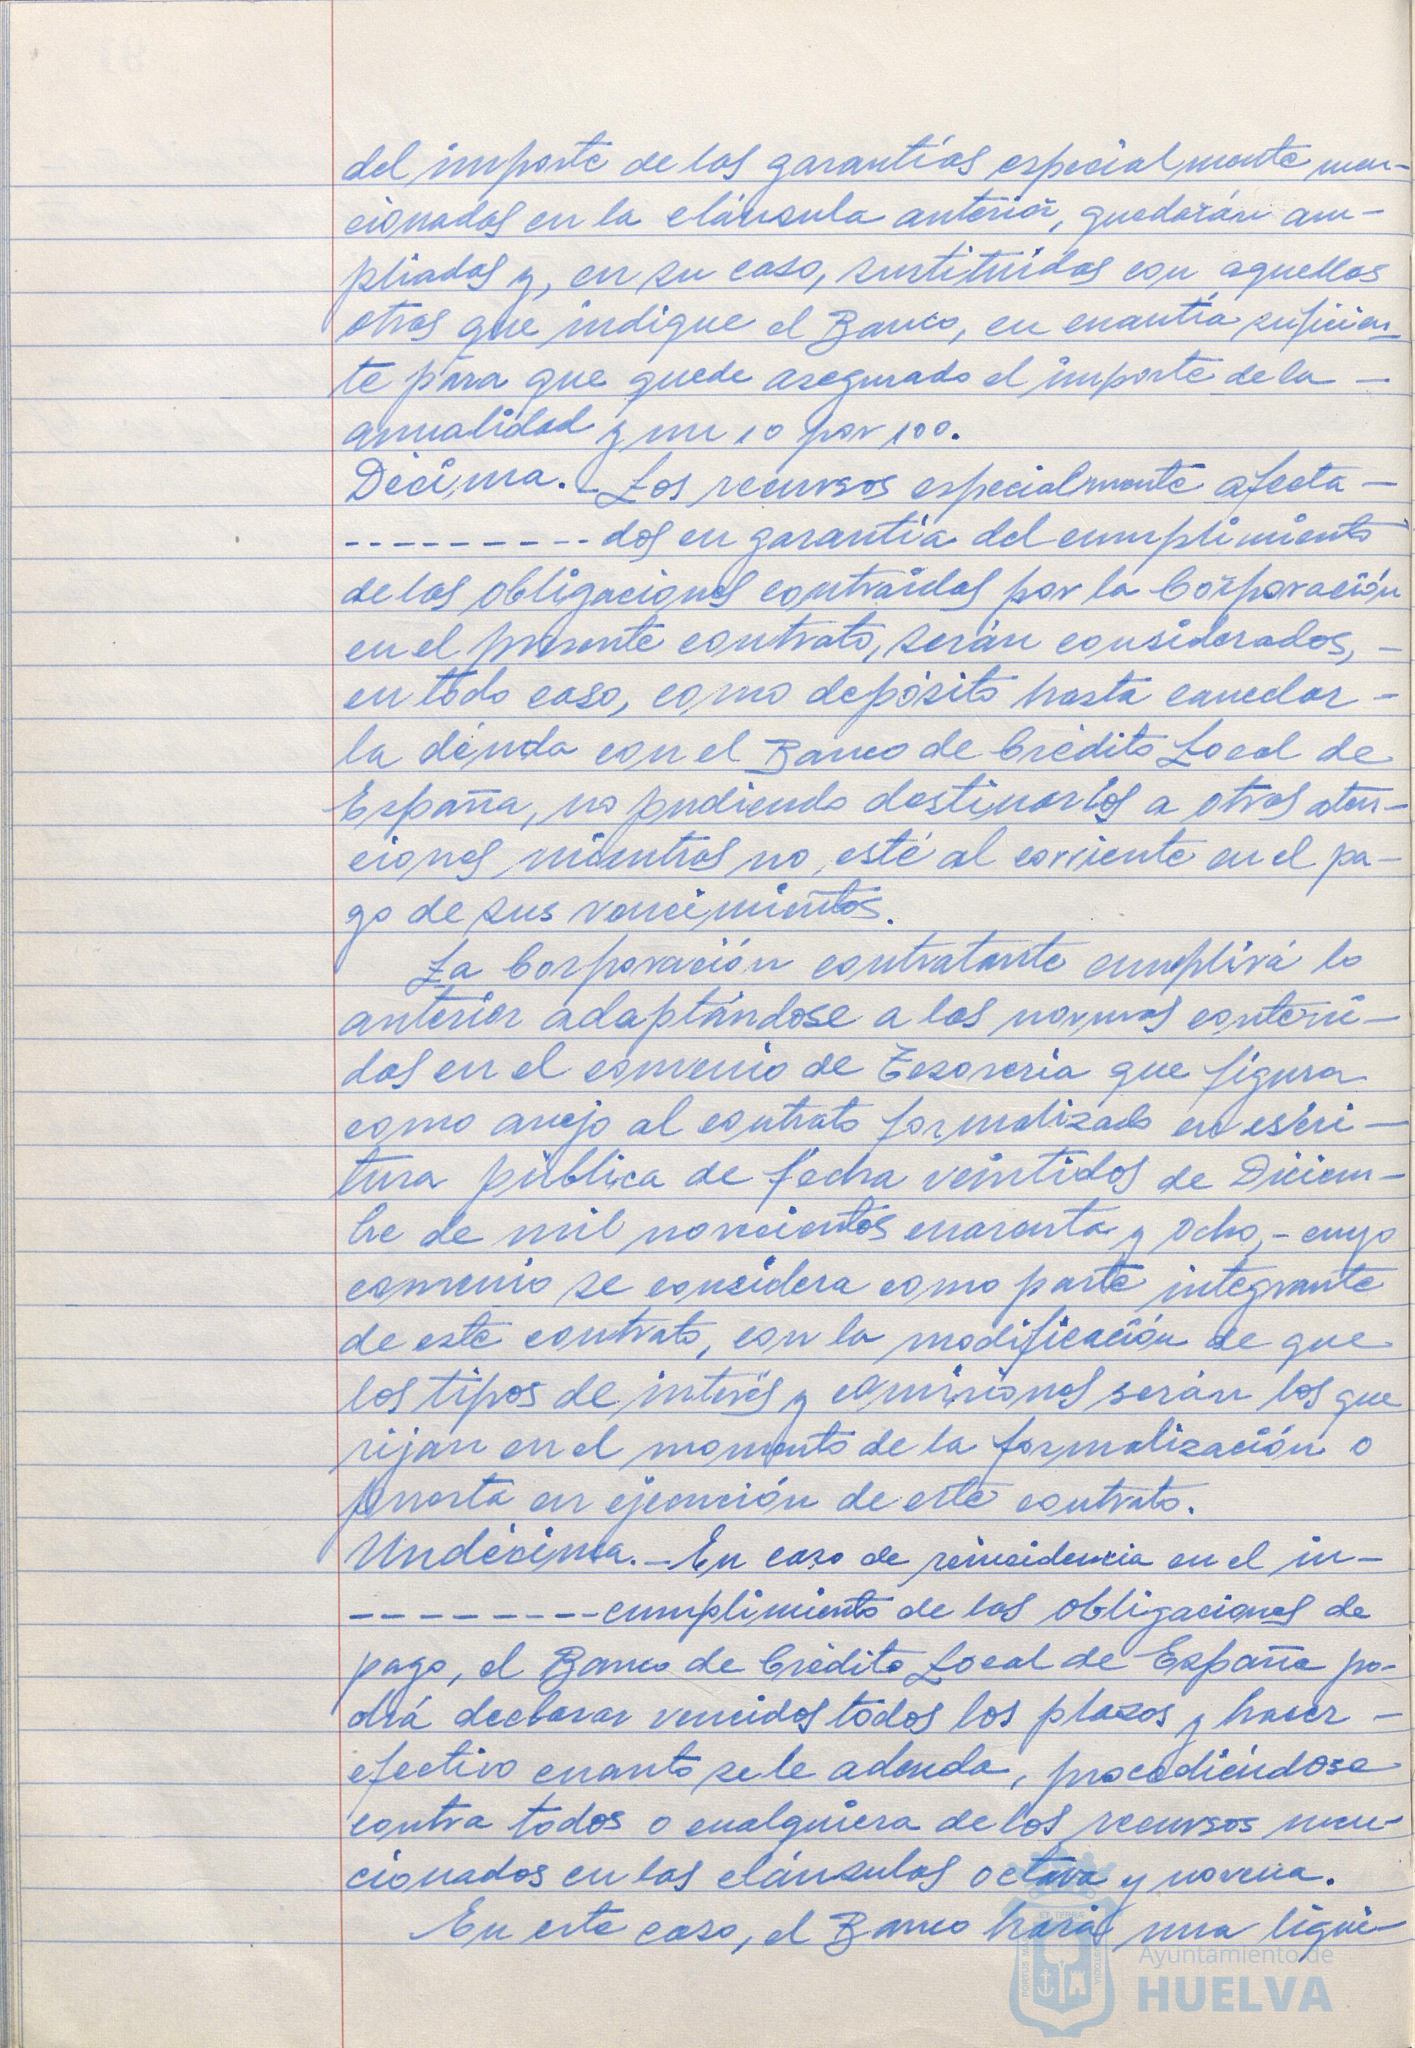 del importe de las garantías especialmente men-
cionadas en la cláusula anterior, quedarán am-
pliadas y, en su caso, sustituidas con aquellas
otras que indique el Banco, en cuantía suficien-
te para que quede asegurado el importe de la -
anualidad y un 10 por 100.
Décima.- Los recursos especialmente afecta -
---------- dos en garantía del cumplimiento
de las obligaciones contraídas por la Corporación
en el presente contrato, serán considerados, -
en todo caso, como depósito hasta cancelar -
la deuda con el Banco de Crédito Local de
España, no pudiendo destinarlos a otras aten-
ciones mientras no esté al corriente en el pa-
go de sus vencimientos.
La Corporación contratante cumplirá lo
anterior adaptándose a las normas conteni-
das en el convenio de Tesorería que figura
como anejo al contrato formalizado en escri-
tura pública de fecha veintidos de Diciem-
bre de mil novecientos cuarenta y ocho,- cuyo
convenio se considera como parte integrante
de este contrato, con la modificación de que
los tipos de interés y comisiones serán los que
rijan en el momento de la formalización o
puesta en ejecución de este contrato.
Undécima.- En caso de reincidencia en el in-
--------- cumplimiento de las obligaciones de
pago, el Banco de Crédito Local de España po-
drá declarar vencidos todos los plazos y hacer -
efectivo cuanto se le adeuda, procediéndose
contra todos o cualquiera de los recursos men-
cionados en las cláusulas octava y novena.
En este caso, el Banco hará una liqui-
Ayuntamiento de
HUELVA